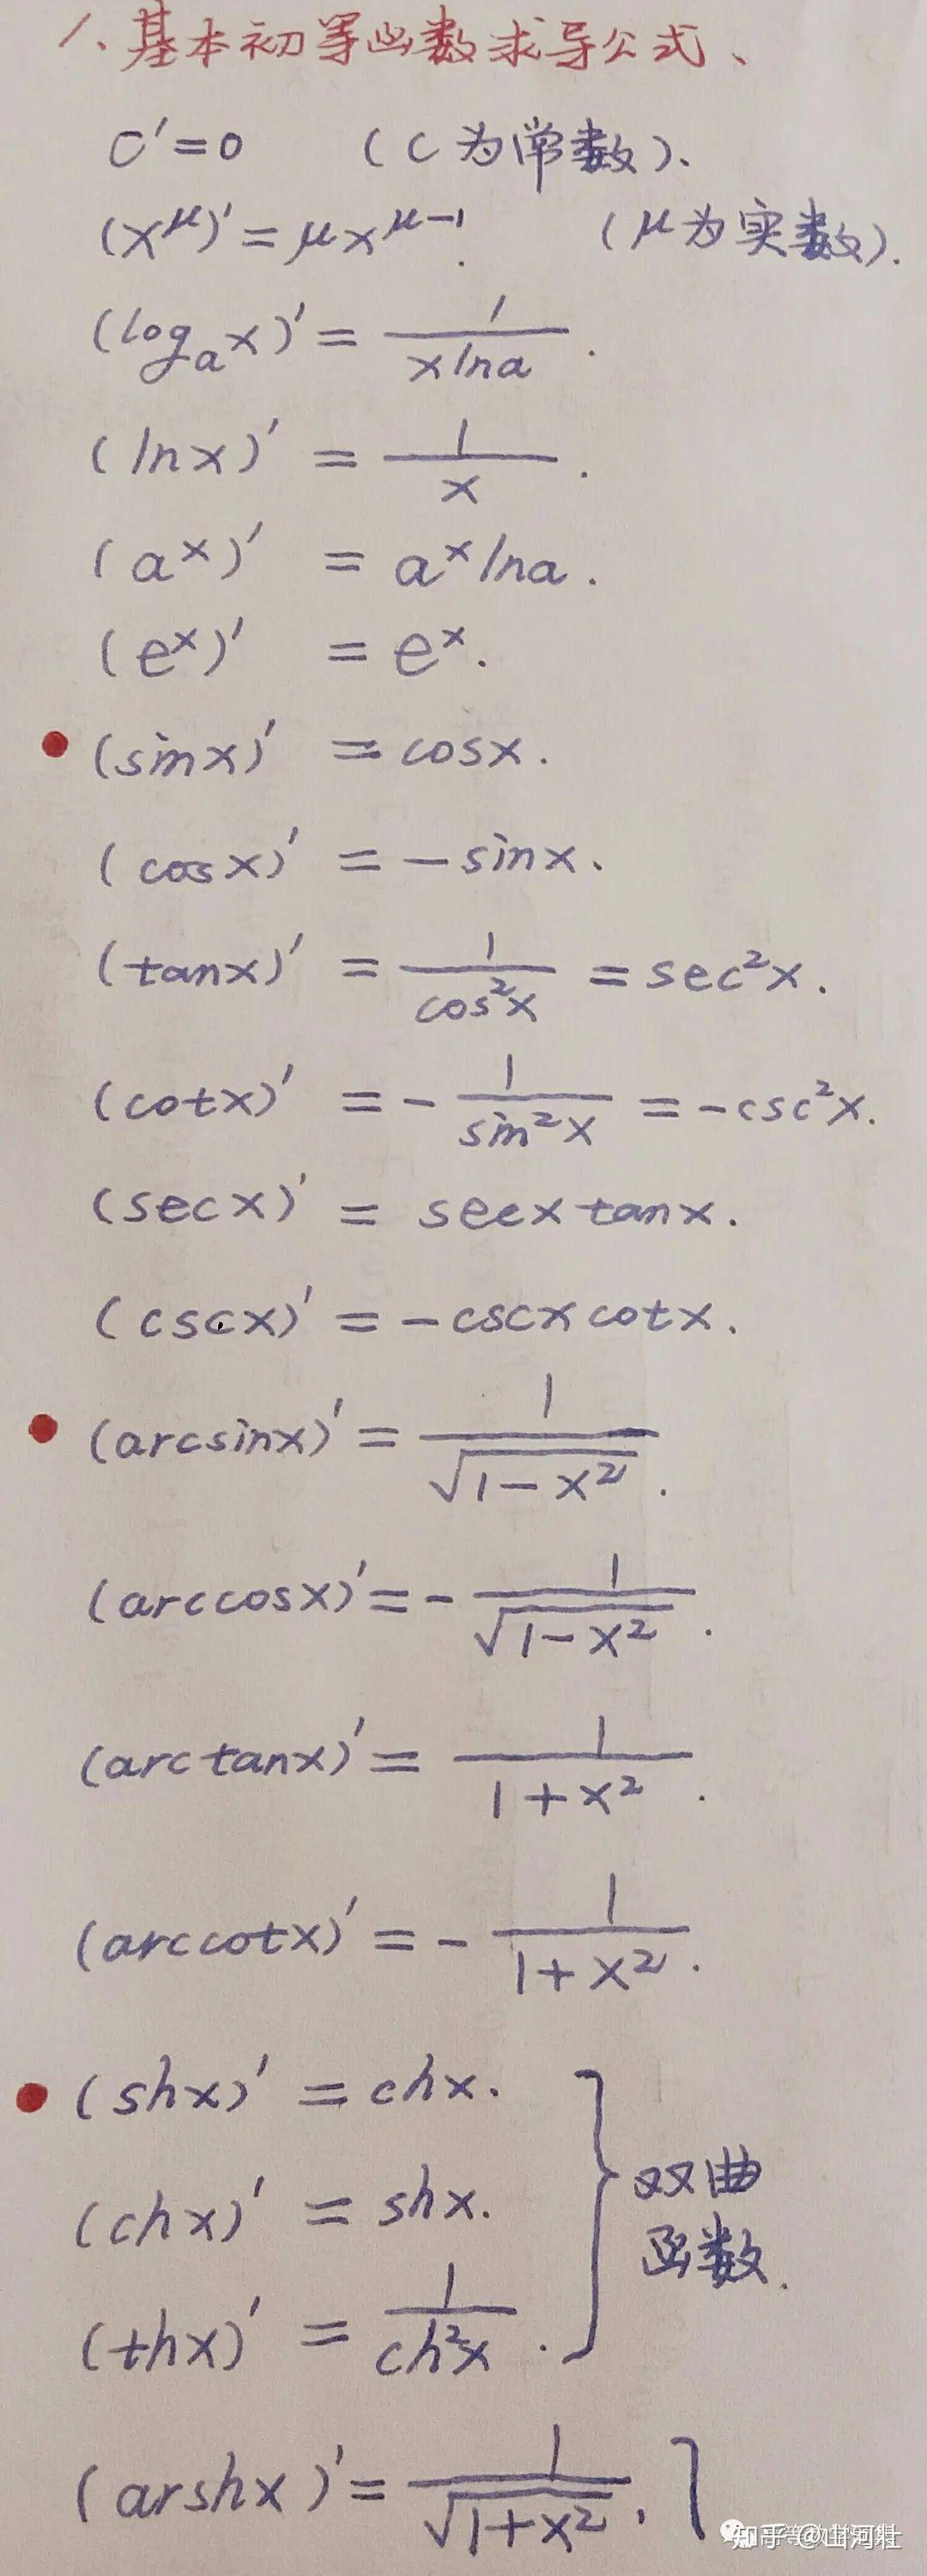 1、基本初等函数求导公式、
C′=0 (C为常数).
(x^μ)′=μx^(μ-1). (μ为实数).
(logₐx)′=1/(xlna).
(lnx)′=1/x.
(a^x)′=a^x lna.
(e^x)′=e^x.
(sinx)′=cosx.
(cosx)′=-sinx.
(tanx)′=1/cos²x=sec²x.
(cotx)′=-1/sin²x=-csc²x.
(secx)′=secxtanx.
(cscx)′=-cscxcotx.
(arcsinx)′=1/√(1-x²).
(arccosx)′=-1/√(1-x²).
(arctanx)′=1/(1+x²).
(arccotx)′=-1/(1+x²).
(shx)′=chx.
(chx)′=shx.
(thx)′=1/ch²x.
双曲
函数.
(arshx)′=1/√(1+x²).
知乎 @山河壮